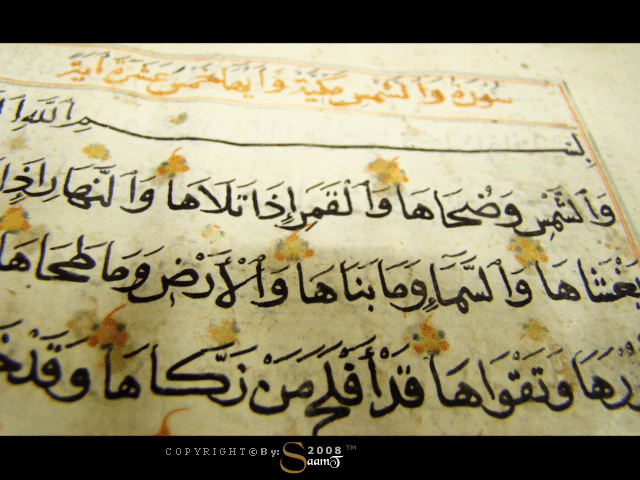 سورة والشمس مكية وآيها خمس عشرة آية
بسم الله
والشَّمْسِ وَضُحَاهَا وَالْقَمَرِ إِذَا تَلَاهَا وَالنَّهَارِ إِذَا
يَغْشَاهَا وَالسَّمَآءِ وَمَا بَنَاهَا وَالْأَرْضِ وَمَا طَحَاهَا
وَتَقْوَاهَا قَدْ أَفْلَحَ مَنْ زَكَّاهَا وَقَدْ
COPYRIGHT©By: SaamT 2008™